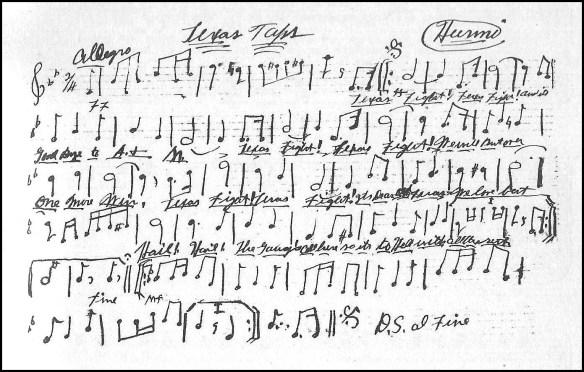 Texas Taps Hurmo
Allegro
2/4
ff Texas Fight! Texas Fight! And it's
Good Bye to A. & M. Texas Fight! Texas Fight! We'll Put over
One More Win. Texas Fight! Texas Fight! It's Texas We Love Best
Hail! Hail! The Gang's all here so it's to Hell with all the rest
Fine mf
D.S. al Fine